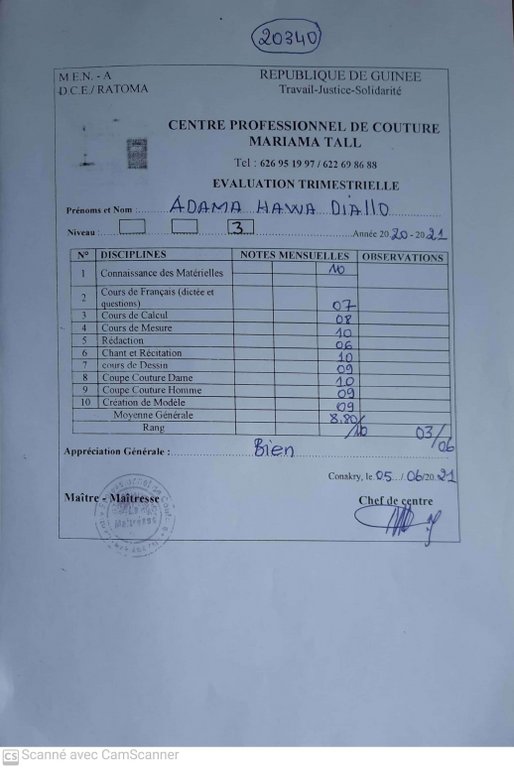 20340
M.E.N. - A
REPUBLIQUE DE GUINEE
D.C.E./ RATOMA
Travail-Justice-Solidarité
CENTRE PROFESSIONNEL DE COUTURE
MARIAMA TALL
Tel : 626 95 19 97 / 622 69 86 88
EVALUATION TRIMESTRIELLE
Prénoms et Nom : ADAMA HAWA DIALLO
Niveau : 3 Année 2020 - 2021
N° DISCIPLINES NOTES MENSUELLES OBSERVATIONS
1 Connaissance des Matérielles 10
2 Cours de Français (dictée et
questions) 07
3 Cours de Calcul 08
4 Cours de Mesure 10
5 Rédaction 06
6 Chant et Récitation 10
7 cours de Dessin 09
8 Coupe Couture Dame 10
9 Coupe Couture Homme 09
10 Création de Modèle 09
Moyenne Générale 8,80/10
Rang 03/06
Appréciation Générale : Bien
Conakry, le 05 / 06/2021
Maître - Maîtresse
Chef de centre
La
Maîtresse
CS Scanné avec CamScanner